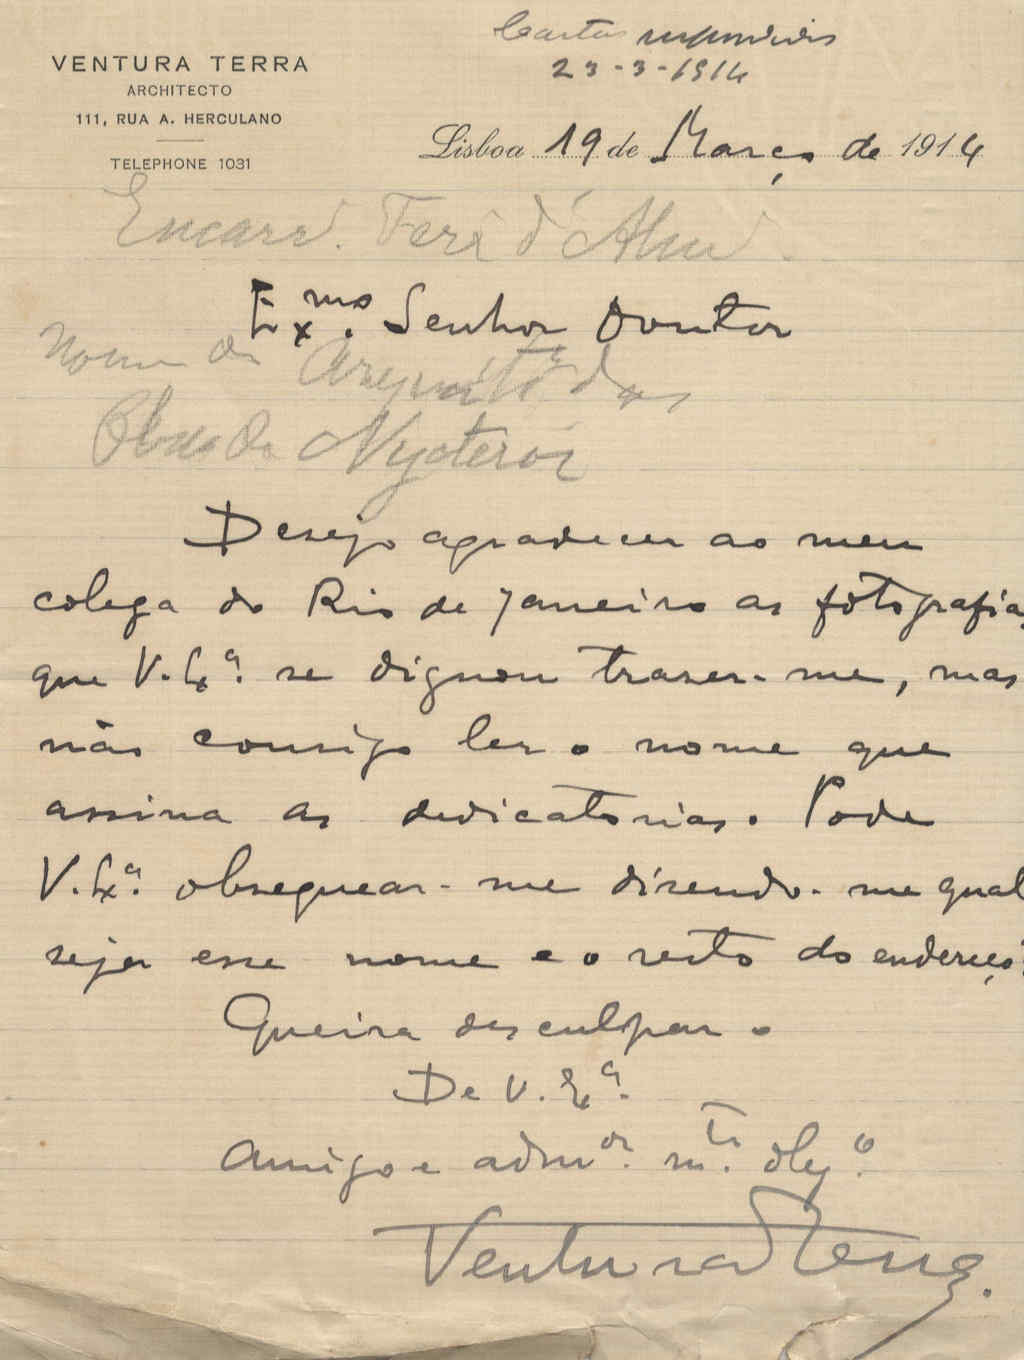 VENTURA TERRA
ARCHITECTO
111, RUA A. HERCULANO
TELEPHONE 1031
Cartas respondidas
23-3-1914
Lisboa 19 de Março de 1914
Encarr.
Exmo. Senhor Doutor
Nome do Arquitº das
Obras de Nycteroi
Desejo agradecer ao meu
colega do Rio de Janeiro as fotografias
que V. Exª. se dignou trazer-me, mas
não consigo ler o nome que
assina as dedicatorias. Pode
V. Exª. obsequear-me dizendo-me qual
seja esse nome e o resto do endereço?
Queira desculpar o
De V. Exª.
Amigo e admor. mto. obgo.
Ventura Terra.